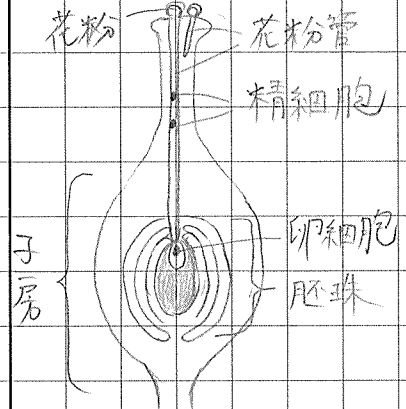 花粉
花粉管
精細胞
卵細胞
胚珠
子房